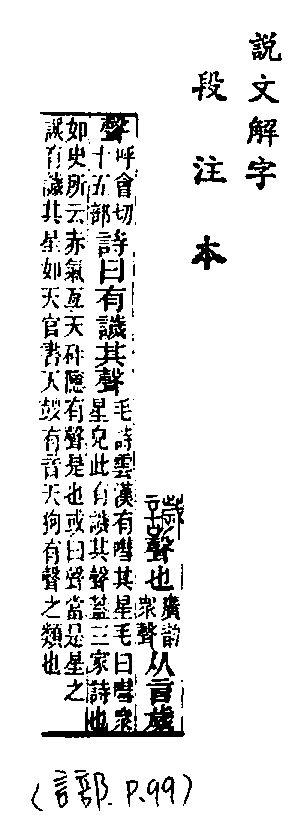 說文解字
段注本
𧬨聲也廣韵衆聲从言歲
聲呼會切十五部詩曰有𧬨其聲毛詩雲漢有嘒其星毛曰嘒衆星皃此有𧬨其聲蓋三家詩也
如史所云赤氣亙天砰隱有聲是也或曰聲當是星之
誤有𧬨其星如天官書天鼓有音天狗有聲之類也
(言部.P.99)